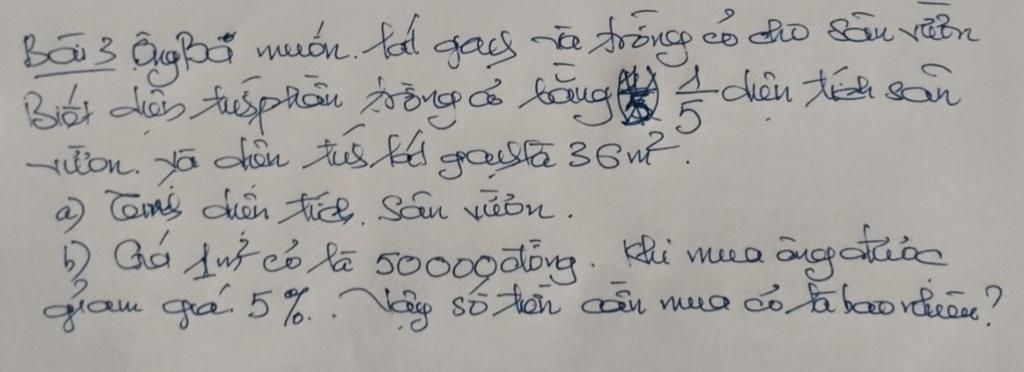 Bài 3 Ông Ba muốn lát gạch và trồng cỏ cho sân vườn
Biết diện tích phần trồng cỏ bằng 1/5 diện tích sân
vườn và diện tích lát gạch là 36m².
a) Tính diện tích sân vườn.
b) Giá 1m² cỏ là 50000 đồng. Khi mua ông được
giảm giá 5%. Vậy số tiền cần mua cỏ là bao nhiêu?